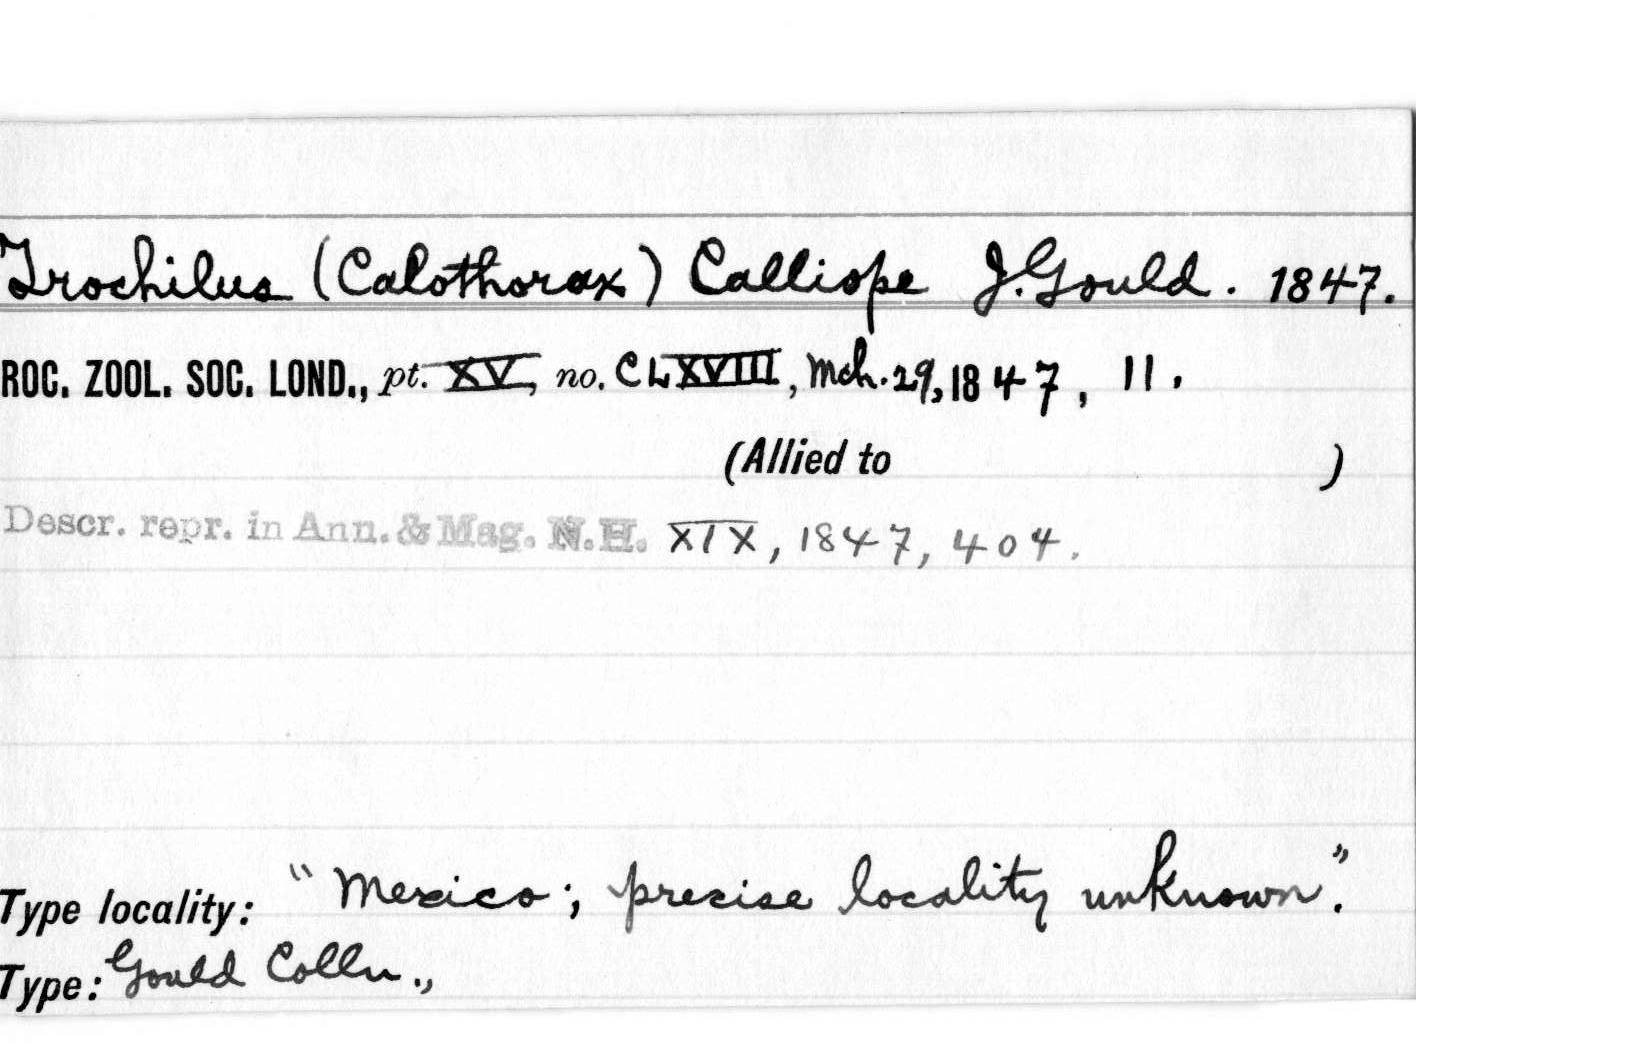 Trochilus (Calothorax) Calliope J. Gould. 1847.
ROC. ZOOL. SOC. LOND., pt. XV, no. CLXVIII, Mch. 29, 1847, 11.
(Allied to )
Descr. repr. in Ann. & Mag. N.H. XIX, 1847, 404.
Type locality: "Mexico; precise locality unknown."
Type: Gould Colln.,